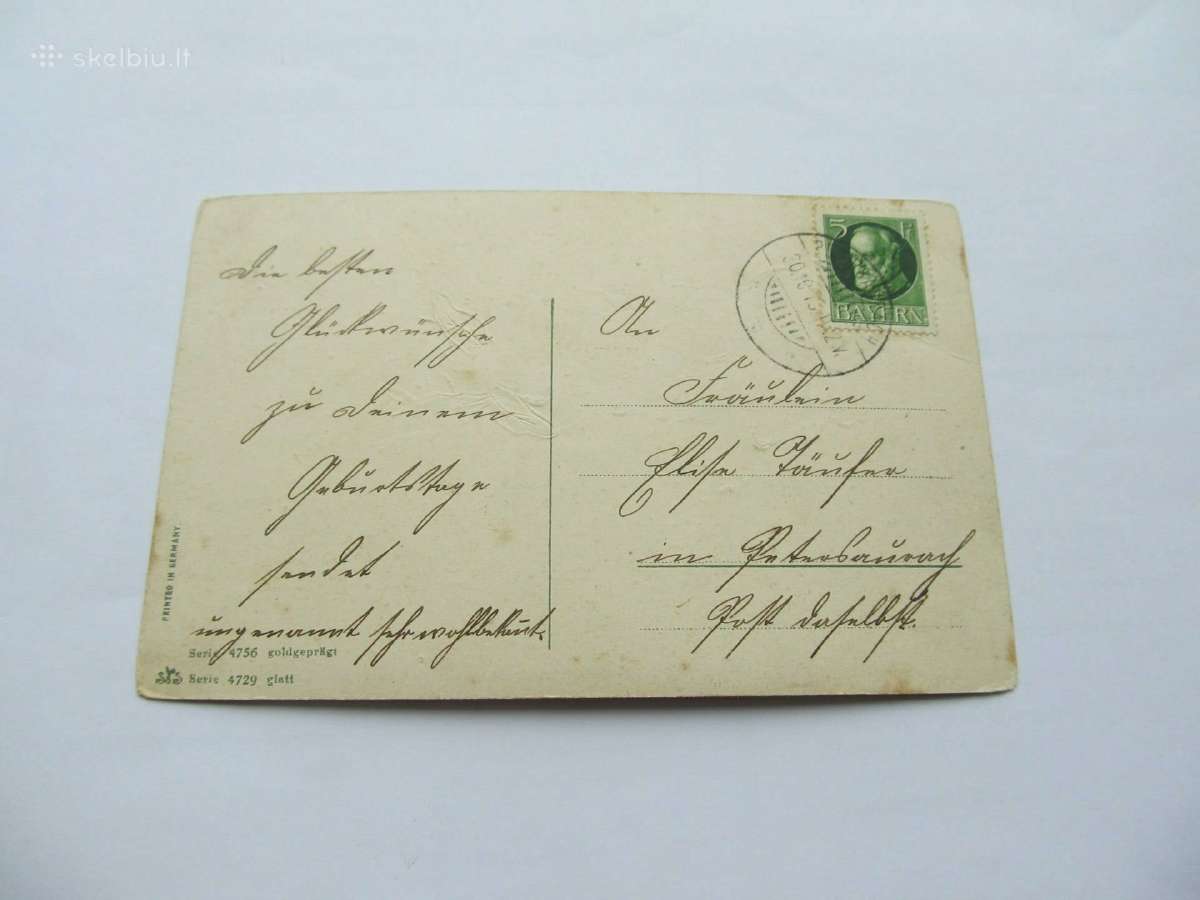 skelbiu.lt
Die besten
Glückwünsche
zu Deinem
Geburtstage
sendet
ungenannt sehr wohlbekannt.
An
Fräulein
Elise Täufer
in Petersaurach
Post daselbst.
5 Pf
BAYERN
PRINTED IN GERMANY
Serie 4756 goldgeprägt
Serie 4729 glatt